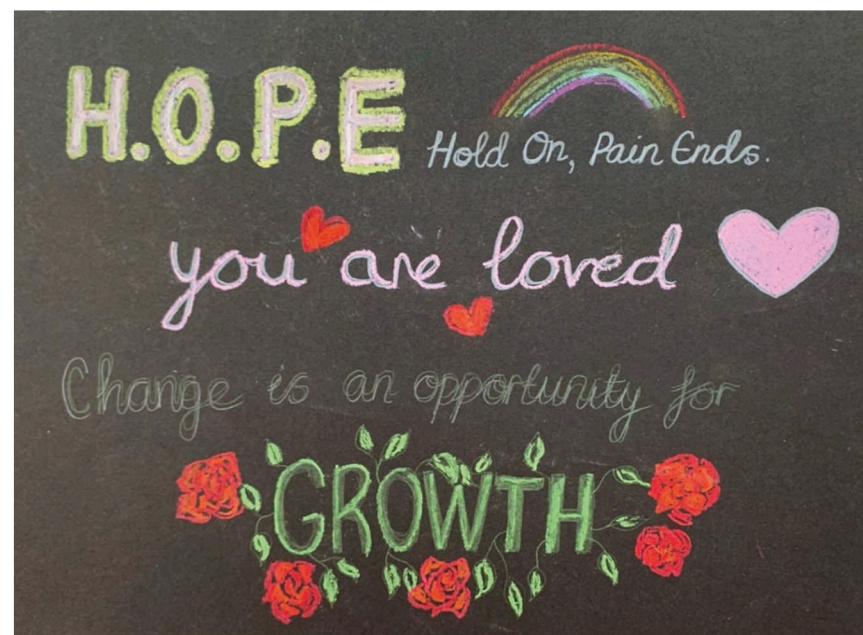 H.O.P.E Hold On, Pain Ends.
you are loved
Change is an opportunity for
GROWTH